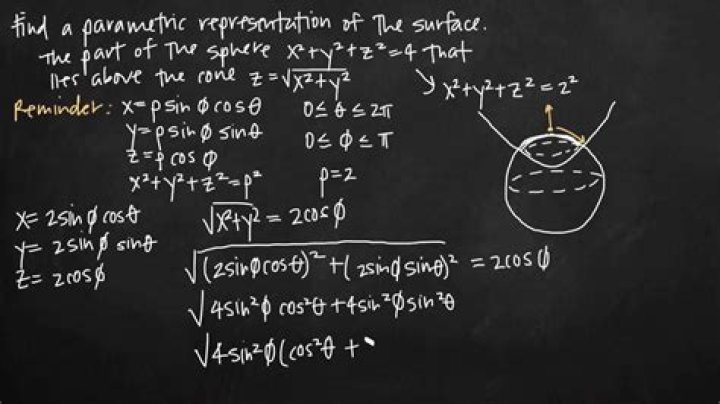 Find a parametric representation of the surface.
The part of the sphere x²+y²+z²=4 that
lies above the cone z=√x²+y²
x²+y²+z²=2²
Reminder: x=ρsinϕcosθ 0≤θ≤2π
y=ρsinϕsinθ 0≤ϕ≤π
z=ρcosϕ
x²+y²+z²=ρ² ρ=2
x=2sinϕcosθ √x²+y²=2cosϕ
y=2sinϕsinθ
z=2cosϕ √(2sinϕcosθ)²+(2sinϕsinθ)²=2cosϕ
√4sin²ϕcos²θ+4sin²ϕsin²θ
√4sin²ϕ(cos²θ+